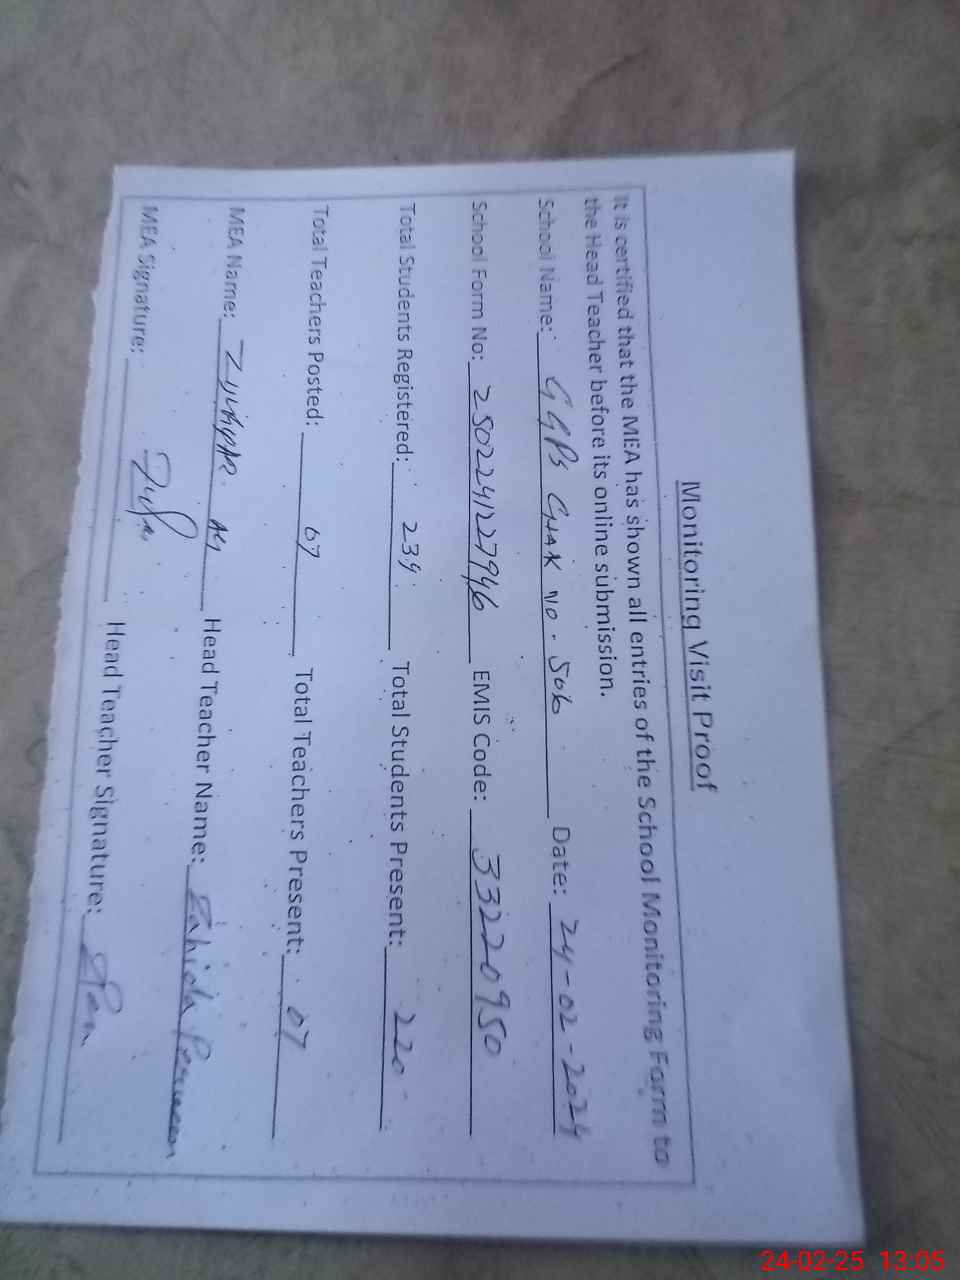 Monitoring Visit Proof
It is certified that the MEA has shown all entries of the School Monitoring Form to
the Head Teacher before its online submission.
School Name: GGPS CHAK NO. 506 Date: 24-02-2024
School Form No: 250224127946 EMIS Code: 33220950
Total Students Registered: 239 Total Students Present: 220
Total Teachers Posted: 07 Total Teachers Present: 07
MEA Name: Zulfiqar Ali Head Teacher Name: Zahida Parveen
MEA Signature: Head Teacher Signature:
24-02-25 13:05